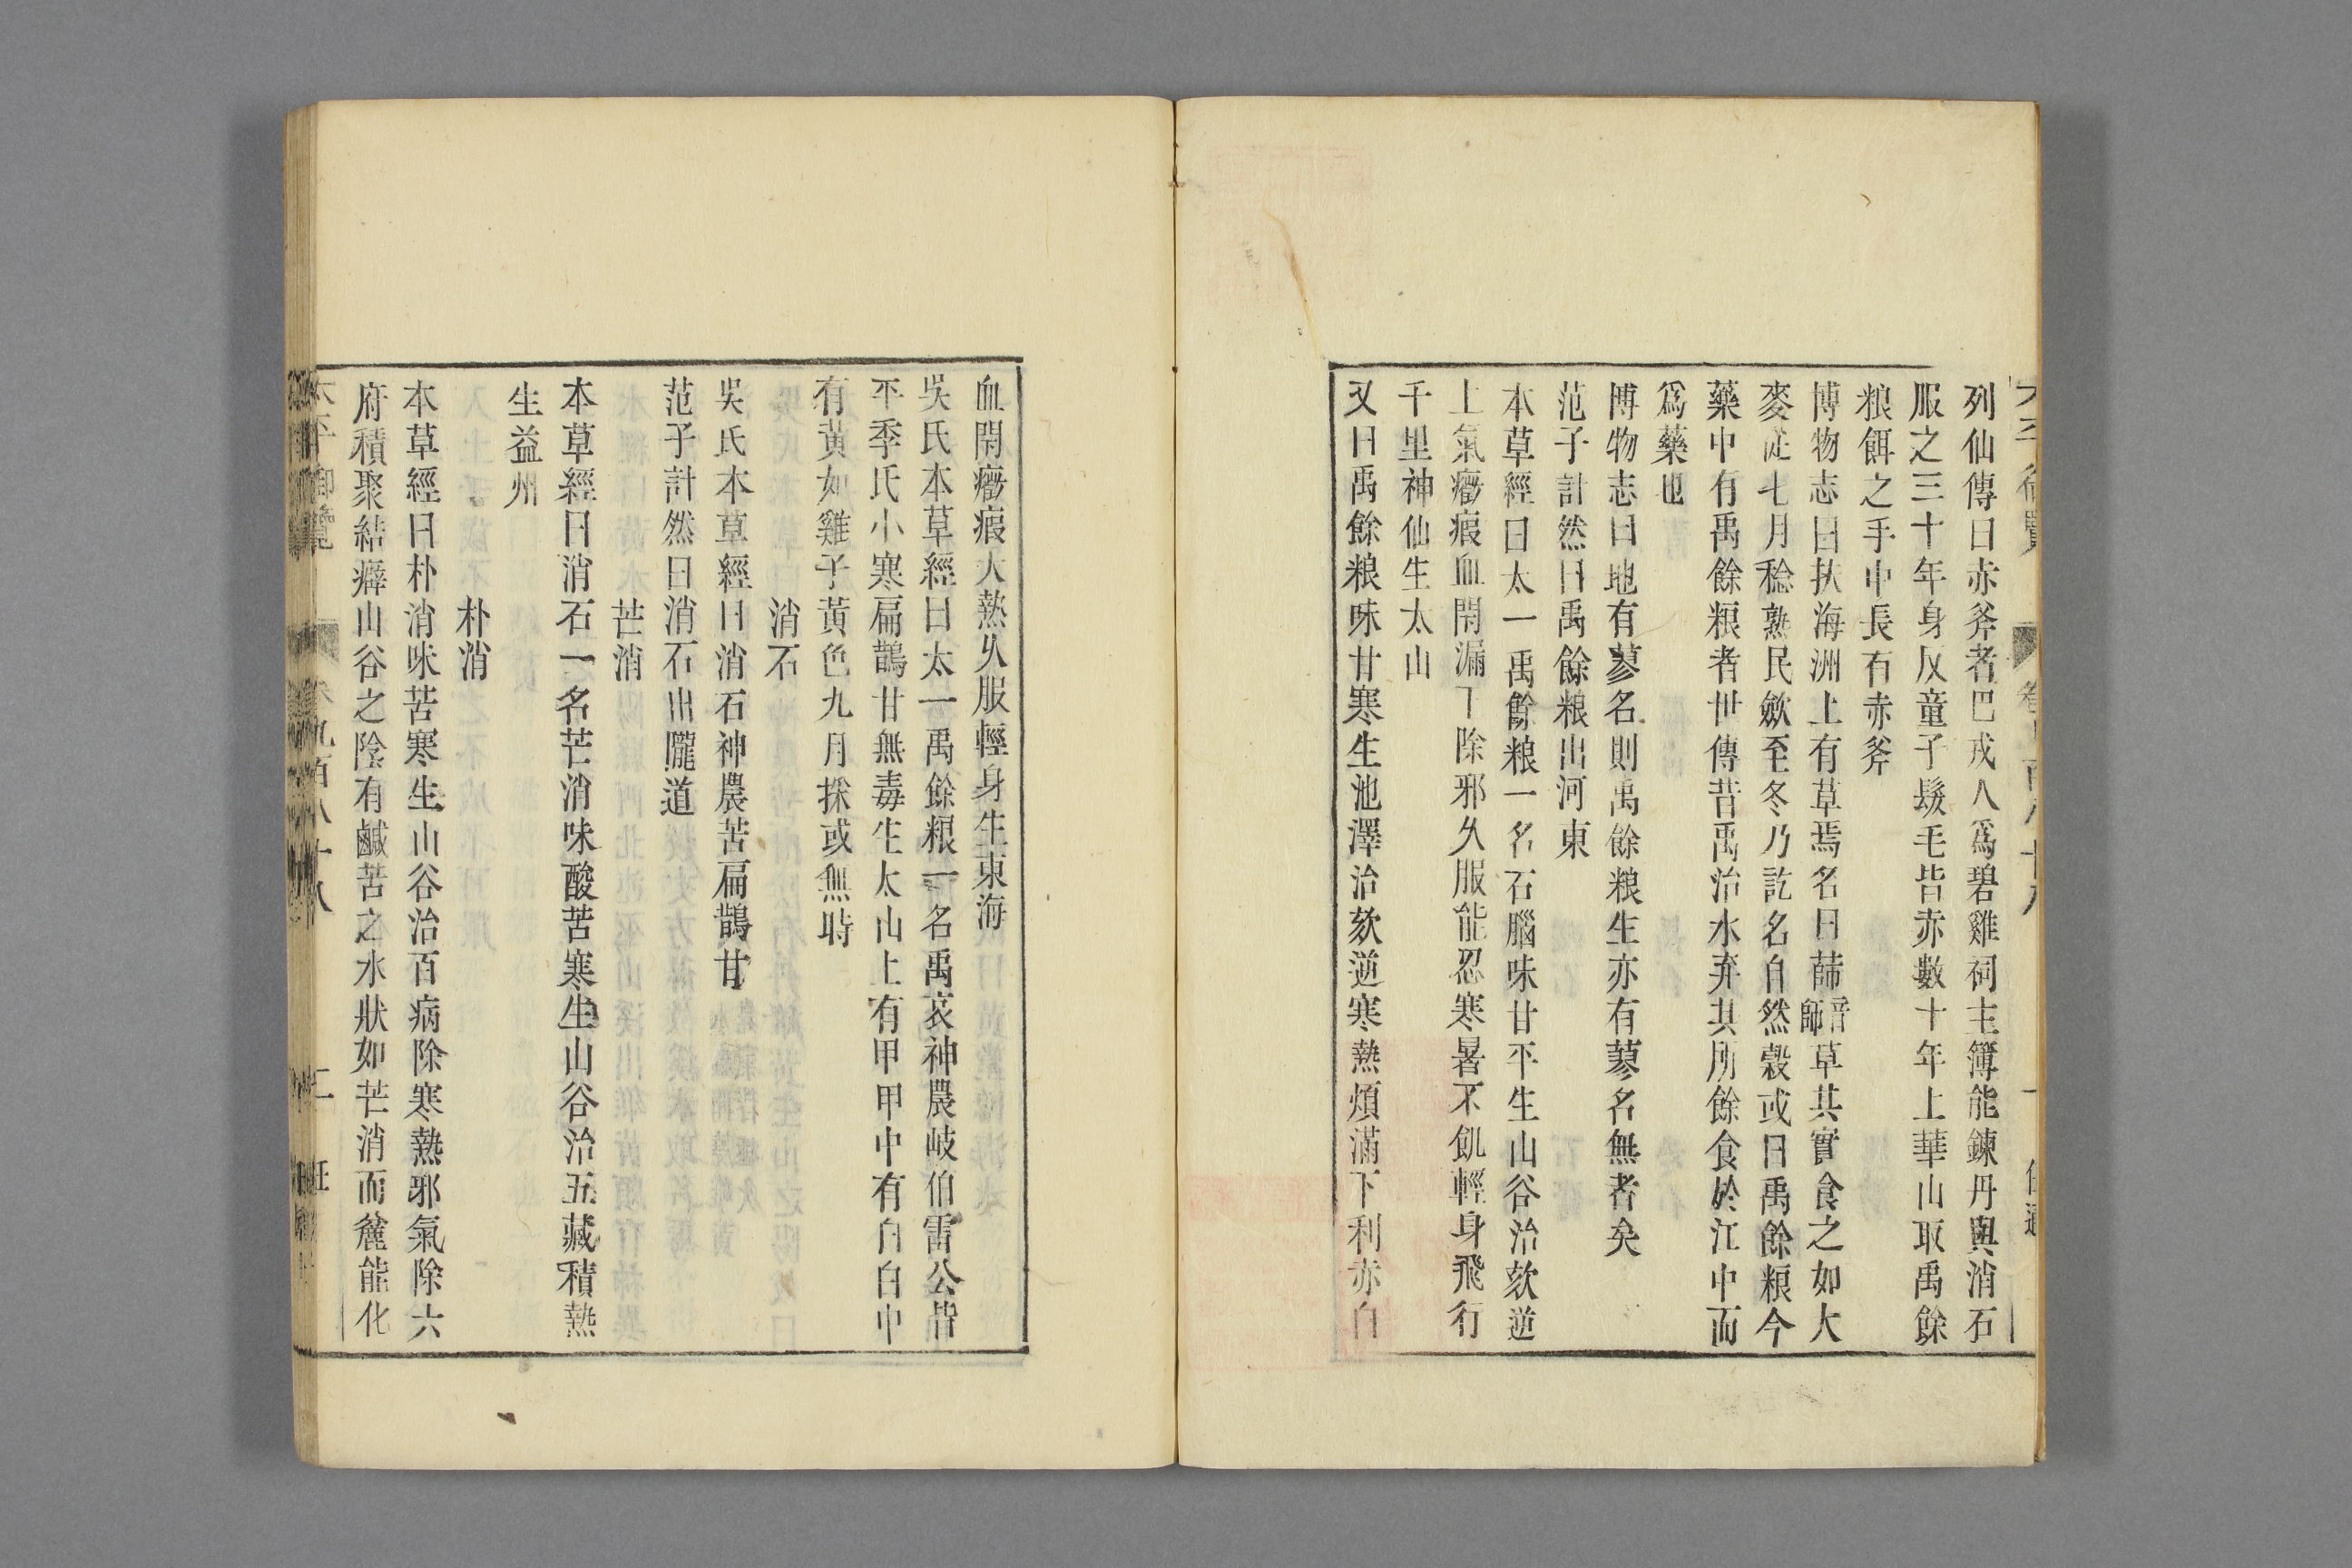 列仙傳曰赤斧者巴戎人爲碧雞祠主簿能鍊丹與消石
服之三十年身反童子髮毛皆赤數十年上華山取禹餘
粮餌之手中長有赤斧
博物志曰扶海洲上有草焉名曰蒒音師草其實食之如大
麥從七月稔熟民斂至冬乃訖名自然穀或曰禹餘粮今
藥中有禹餘粮者世傳昔禹治水弃其所餘食於江中而
爲藥也
博物志曰地有蓼名則禹餘粮生亦有蓼名無者矣
范子計然曰禹餘粮出河東
本草經曰太一禹餘粮一名石腦味甘平生山谷治欬逆
上氣癥瘕血閉漏下除邪久服能忍寒暑不飢輕身飛行
千里神仙生太山
又曰禹餘粮味甘寒生池澤治欬逆寒熱煩滿下利赤白
血閉癥瘕大熱久服輕身生東海
吳氏本草經曰太一禹餘粮一名禹哀神農岐伯雷公皆
平季氏小寒扁鵲甘無毒生太山上有甲甲中有白白中
有黄如雞子黄色九月採或無時
消石
吳氏本草經曰消石神農苦扁鵲甘
范子計然曰消石出隴道
芒消
本草經曰消石一名芒消味酸苦寒生山谷治五藏積熱
生益州
朴消
本草經曰朴消味苦寒生山谷治百病除寒熱邪氣除六
府積聚結癖山谷之陰有鹹苦之水狀如芒消而麄能化
太平御覽 卷九百八十八 二